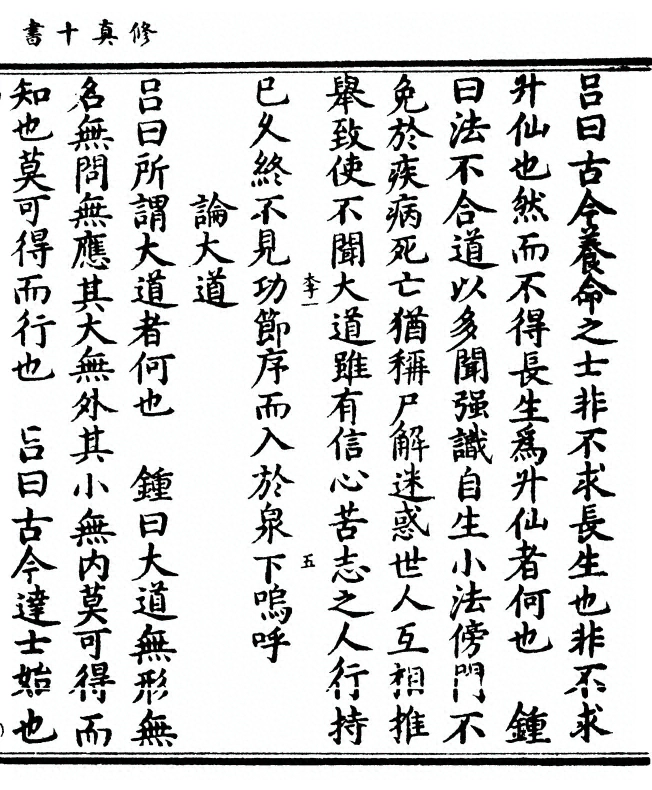 修真十書
呂曰古今養命之士非不求長生也非不求
升仙也然而不得長生爲升仙者何也　鍾
曰法不合道以多聞强識自生小法傍門不
免於疾病死亡猶稱尸解迷惑世人互相推
舉致使不聞大道雖有信心苦志之人行持
李一　五
已久終不見功節序而入於泉下嗚呼
論大道
呂曰所謂大道者何也　鍾曰大道無形無
名無問無應其大無外其小無内莫可得而
知也莫可得而行也　呂曰古今達士始也